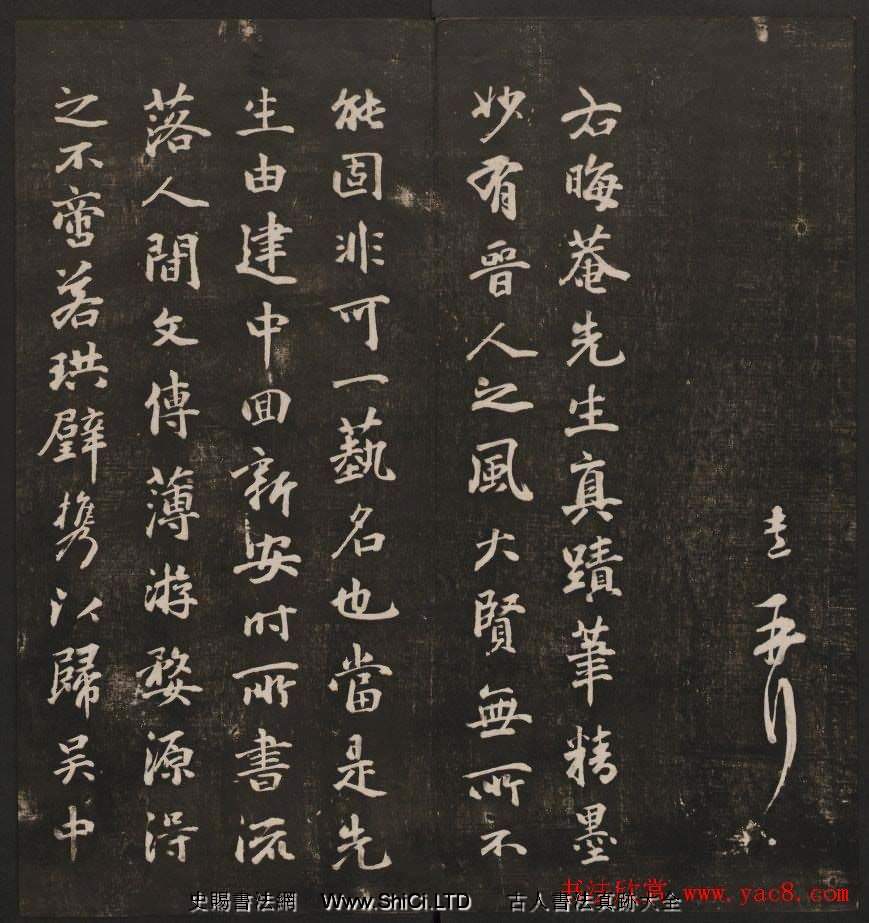 右晦菴先生真蹟筆精墨
妙有晉人之風大賢無所不
能固非可一藝名也當是先
生由建中回新安时所書流
落人間文傳薄游婺源得
之不啻若珙璧携以歸吴中
史賜書法網 Www.ShiCi.LTD 古人書法真跡大全
书法欣赏 www.yac8.com